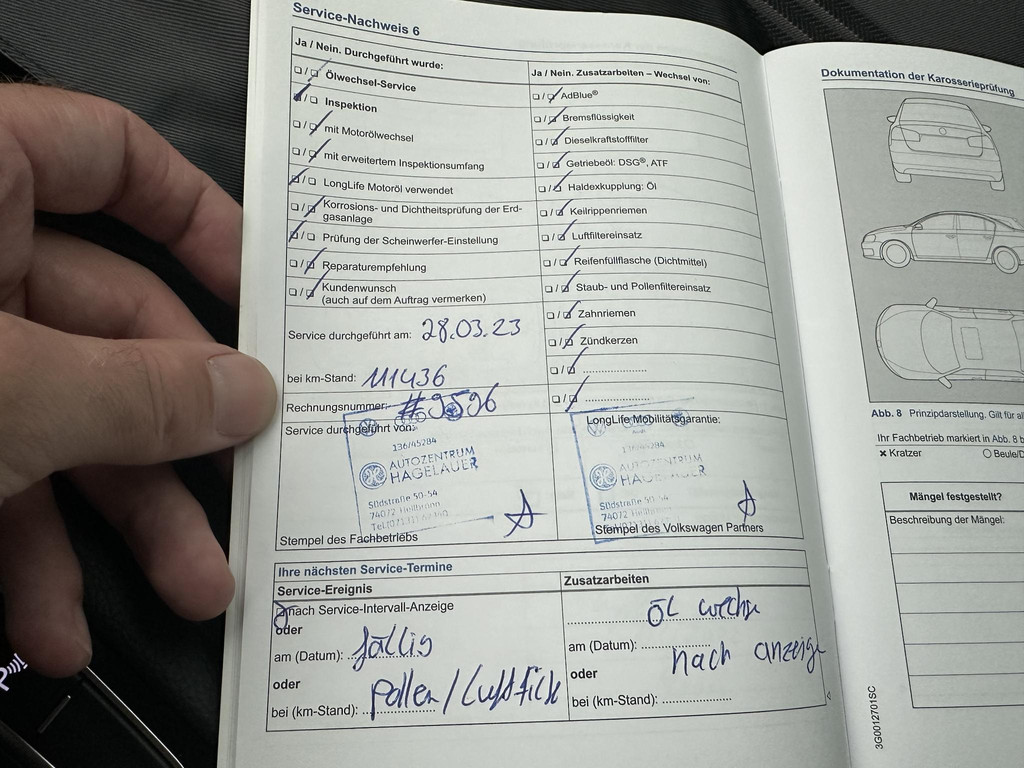 Service-Nachweis 6
Ja / Nein. Durchgeführt wurde:
Ölwechsel-Service
Inspektion
mit Motorölwechsel
mit erweitertem Inspektionsumfang
LongLife Motoröl verwendet
Korrosions- und Dichtheitsprüfung der Erd-
gasanlage
Prüfung der Scheinwerfer-Einstellung
Reparaturempfehlung
Kundenwunsch
(auch auf dem Auftrag vermerken)
Service durchgeführt am: 28.03.23
bei km-Stand: 111436
Rechnungsnummer: #9596
Service durchgeführt von:
136/45284
AUTOZENTRUM
HAGELAUER
Südstraße 50-54
74072 Heilbronn
Stempel des Fachbetriebs
Ja / Nein. Zusatzarbeiten – Wechsel von:
AdBlue®
Bremsflüssigkeit
Dieselkraftstofffilter
Getriebeöl: DSG®, ATF
Haldexkupplung: Öl
Keilrippenriemen
Luftfiltereinsatz
Reifenfüllflasche (Dichtmittel)
Staub- und Pollenfiltereinsatz
Zahnriemen
Zündkerzen
LongLife Mobilitätsgarantie:
AUTOZENTRUM
HAGELAUER
Südstraße 50-54
74072 Heilbronn
Stempel des Volkswagen Partners
Ihre nächsten Service-Termine
Service-Ereignis
nach Service-Intervall-Anzeige
oder
am (Datum): fällig
oder
bei (km-Stand): Pollen/Luftfilter
Zusatzarbeiten
ÖL wechsel
am (Datum): nach anzeige
oder
bei (km-Stand):
Dokumentation der Karosserieprüfung
Abb. 8 Prinzipdarstellung. Gilt für al
Ihr Fachbetrieb markiert in Abb. 8 b
× Kratzer
○ Beule/D
Mängel festgestellt?
Beschreibung der Mängel:
3G0012701SC